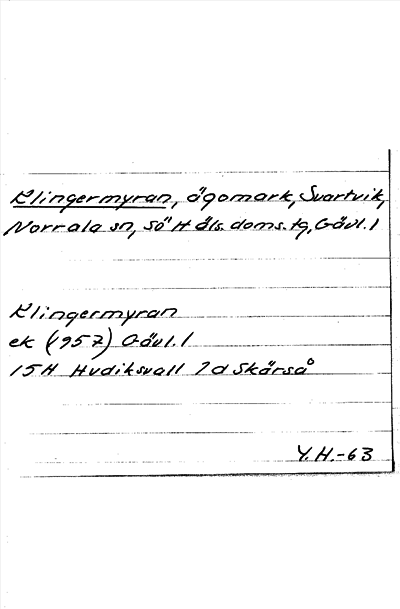 Klingermyran, ägomark, Svartvik,
Norrala sn, Sö Häls. doms. tg, Gävl. l
Klingermyran
ek (1957) Gävl. l
15H Hudiksvall 7d Skärså
Y.H.-63